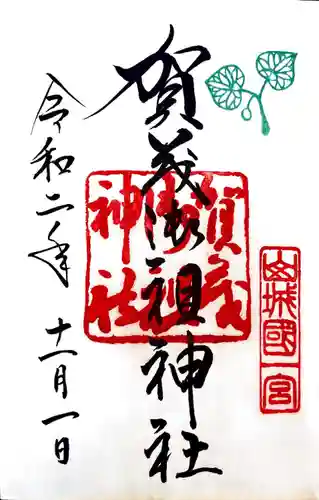 山城國一宮
賀茂御祖神社
賀茂御祖神社
令和二年 十一月一日